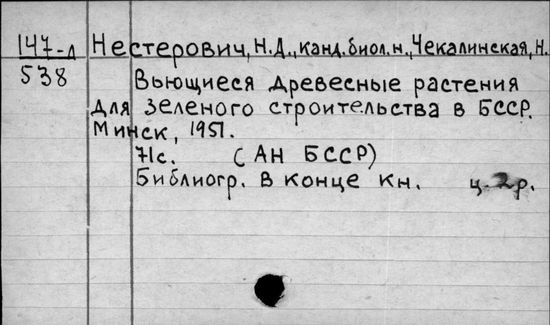 147-л Нестерович, Н.Д., канд. биол. н., Чекалинская, Н.
538 Вьющиеся древесные растения
для зеленого строительства в БССР.
Минск, 1951.
71с. (АН БССР)
Библиогр. в конце кн. ц. 2р.